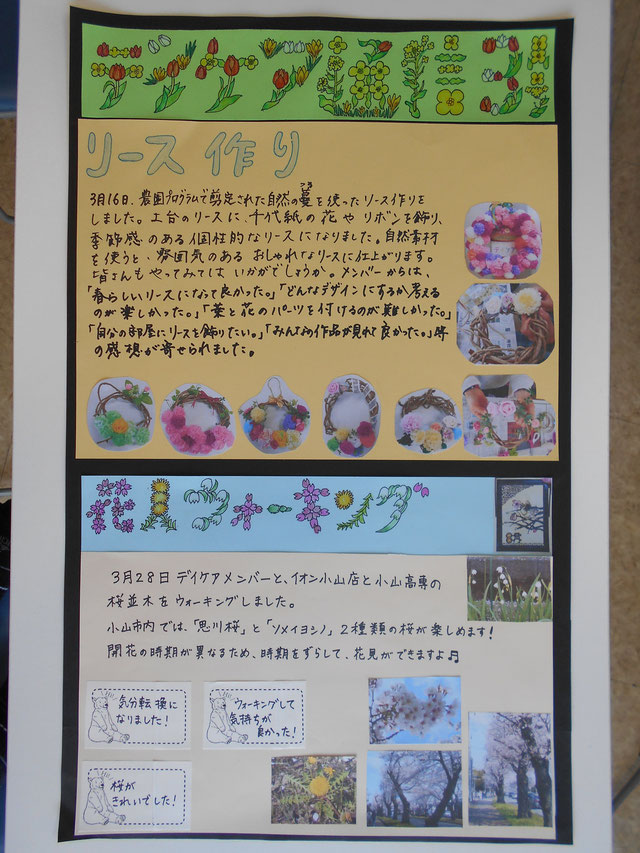 デイケア通信
リース作り
3月16日、農園プログラムで剪定された自然の蔓を使ったリース作りを
しました。土台のリースに、千代紙の花やリボンを飾り、
季節感のある個性的なリースになりました。自然素材
を使うと、雰囲気のあるおしゃれなリースに仕上がります。
皆さんもやってみてはいかがでしょうか。メンバーからは、
「春らしいリースになって良かった。」「どんなデザインにするか考える
のが楽しかった。」「葉と花のパーツを付けるのが難しかった。」
「自分の部屋にリースを飾りたい。」「みんなの作品が見れて良かった。」等
の感想が寄せられました。
花見ウォーキング
3月28日デイケアメンバーと、イオン小山店と小山高専の
桜並木をウォーキングしました。
小山市内では、「思川桜」と「ソメイヨシノ」2種類の桜が楽しめます！
開花の時期が異なるため、時期をずらして、花見ができますよ♫
気分転換に
なりました！
ウォーキングして
気持ちが
良かった！
桜が
きれいでした！